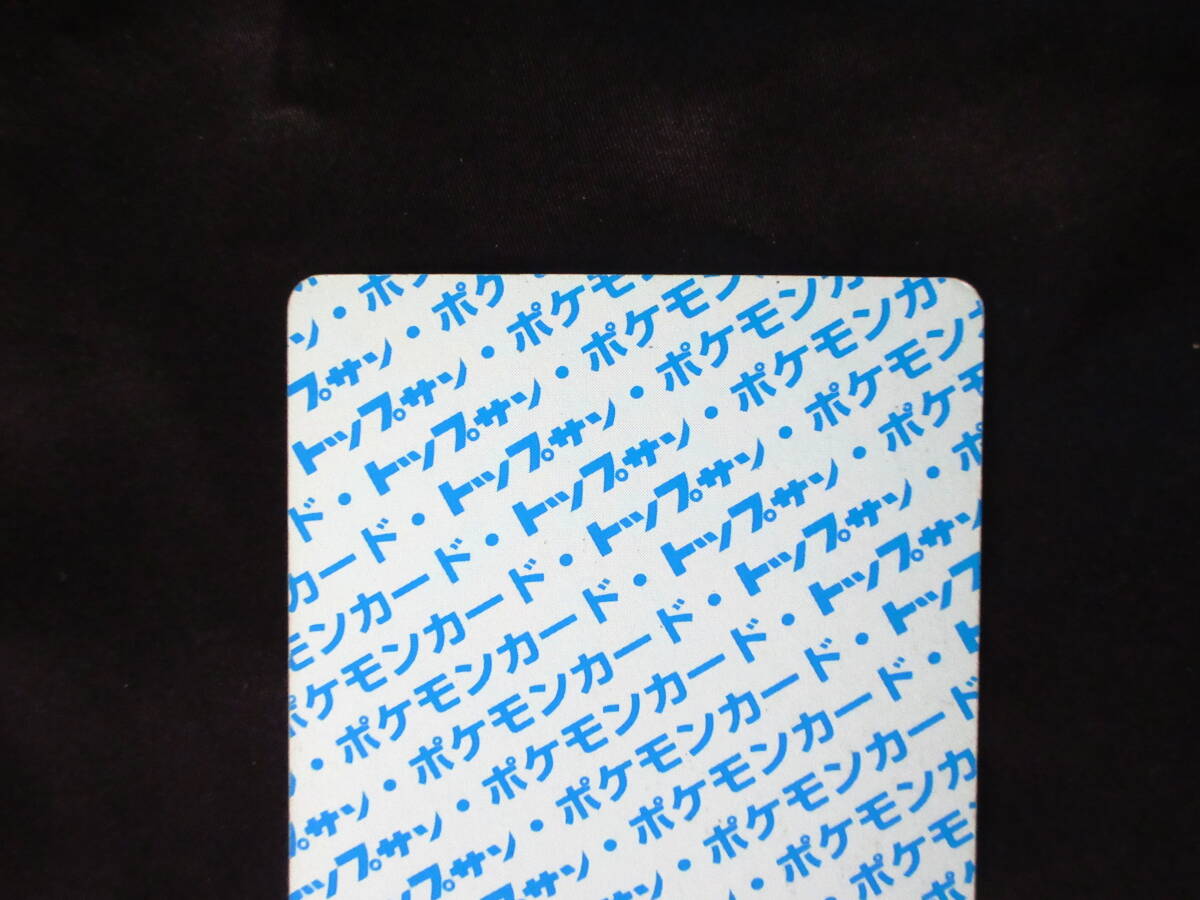 ン・ポ
プサン・ポケ
トップサン・ポケモ
ド・トップサン・ポケモン
カード・トップサン・ポケモンカ
モンカード・トップサン・ポケモンカ
ポケモンカード・トップサン・ポケモン
・ポケモンカード・トップサン・ポケモ
プサン・ポケモンカード・トップサン・ポ
トップサン・ポケモンカード・トップサン
トップサン・ポケモンカード・トップ
プサン・ポケモンカード・ト
ン・ポケモンカード
・ポケモンカ
ポケモ
ポ